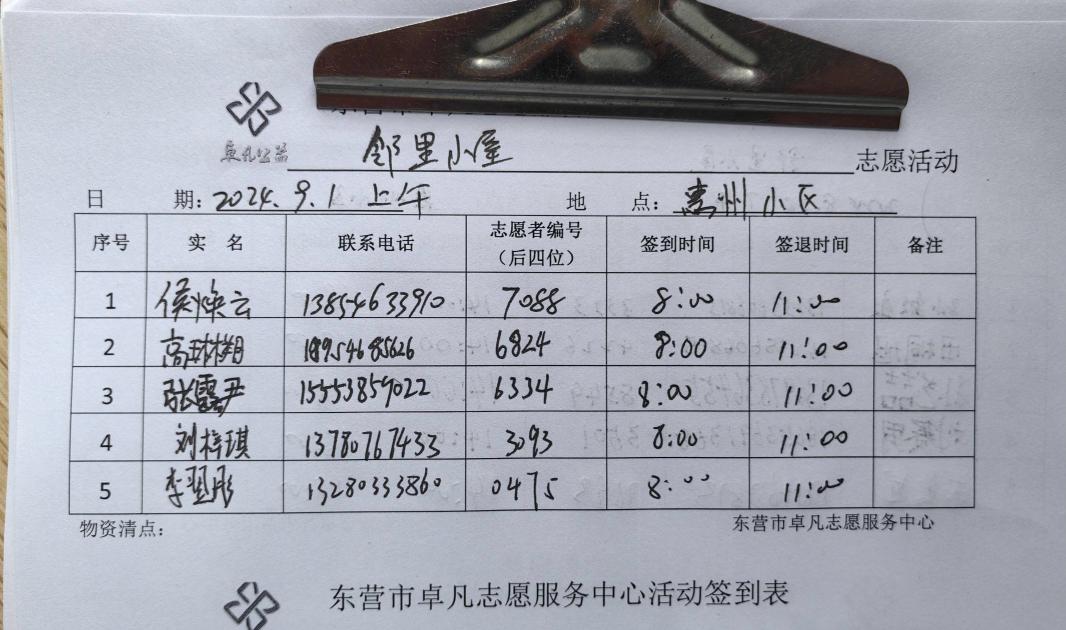 卓凡公益
邻里小屋 志愿活动
日 期：2024.9.1 上午 地 点：惠州小区
序号 实 名 联系电话 志愿者编号（后四位） 签到时间 签退时间 备注
1 侯焕云 13854633910 7088 8:00 11:00
2 高 18954685626 6824 8:00 11:00
3 张露尹 15553859022 6334 8:00 11:00
4 刘梓琪 13780767433 3093 8:00 11:00
5 李翌彤 13280333860 0475 8:00 11:00
物资清点： 东营市卓凡志愿服务中心
东营市卓凡志愿服务中心活动签到表